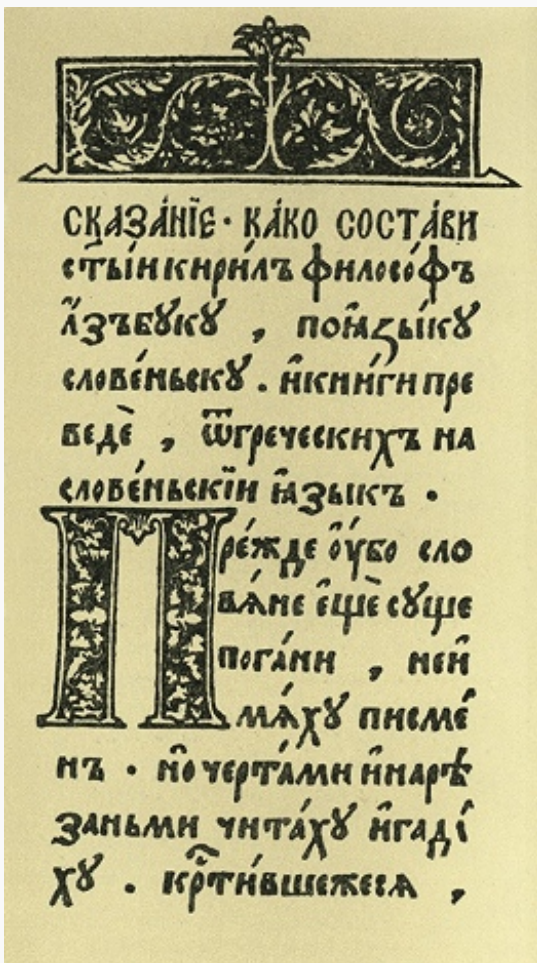 СКАЗА́НЇЕ · КА́КО СОСТА́ВИ
сты́и кири́лъ филосо́фъ
а҆́зъбꙋкꙋ , по ꙗ҆зы́кꙋ
слове́ньскꙋ . и҆ кни́ги пре
ведѐ , ѿ греческихъ на
слове́ньскїи ꙗ҆зыкъ .
Пре́жде ѹ҆́бо сло
вѧ́не є҆щѐ сꙋще
пога́ни , не и҆
мѧ́хꙋ писме́
нъ . но҆ черта́ми и҆ нарѣ
заньми чита́хꙋ и҆ гада́
хꙋ . кр҃ти́вшежесѧ ,